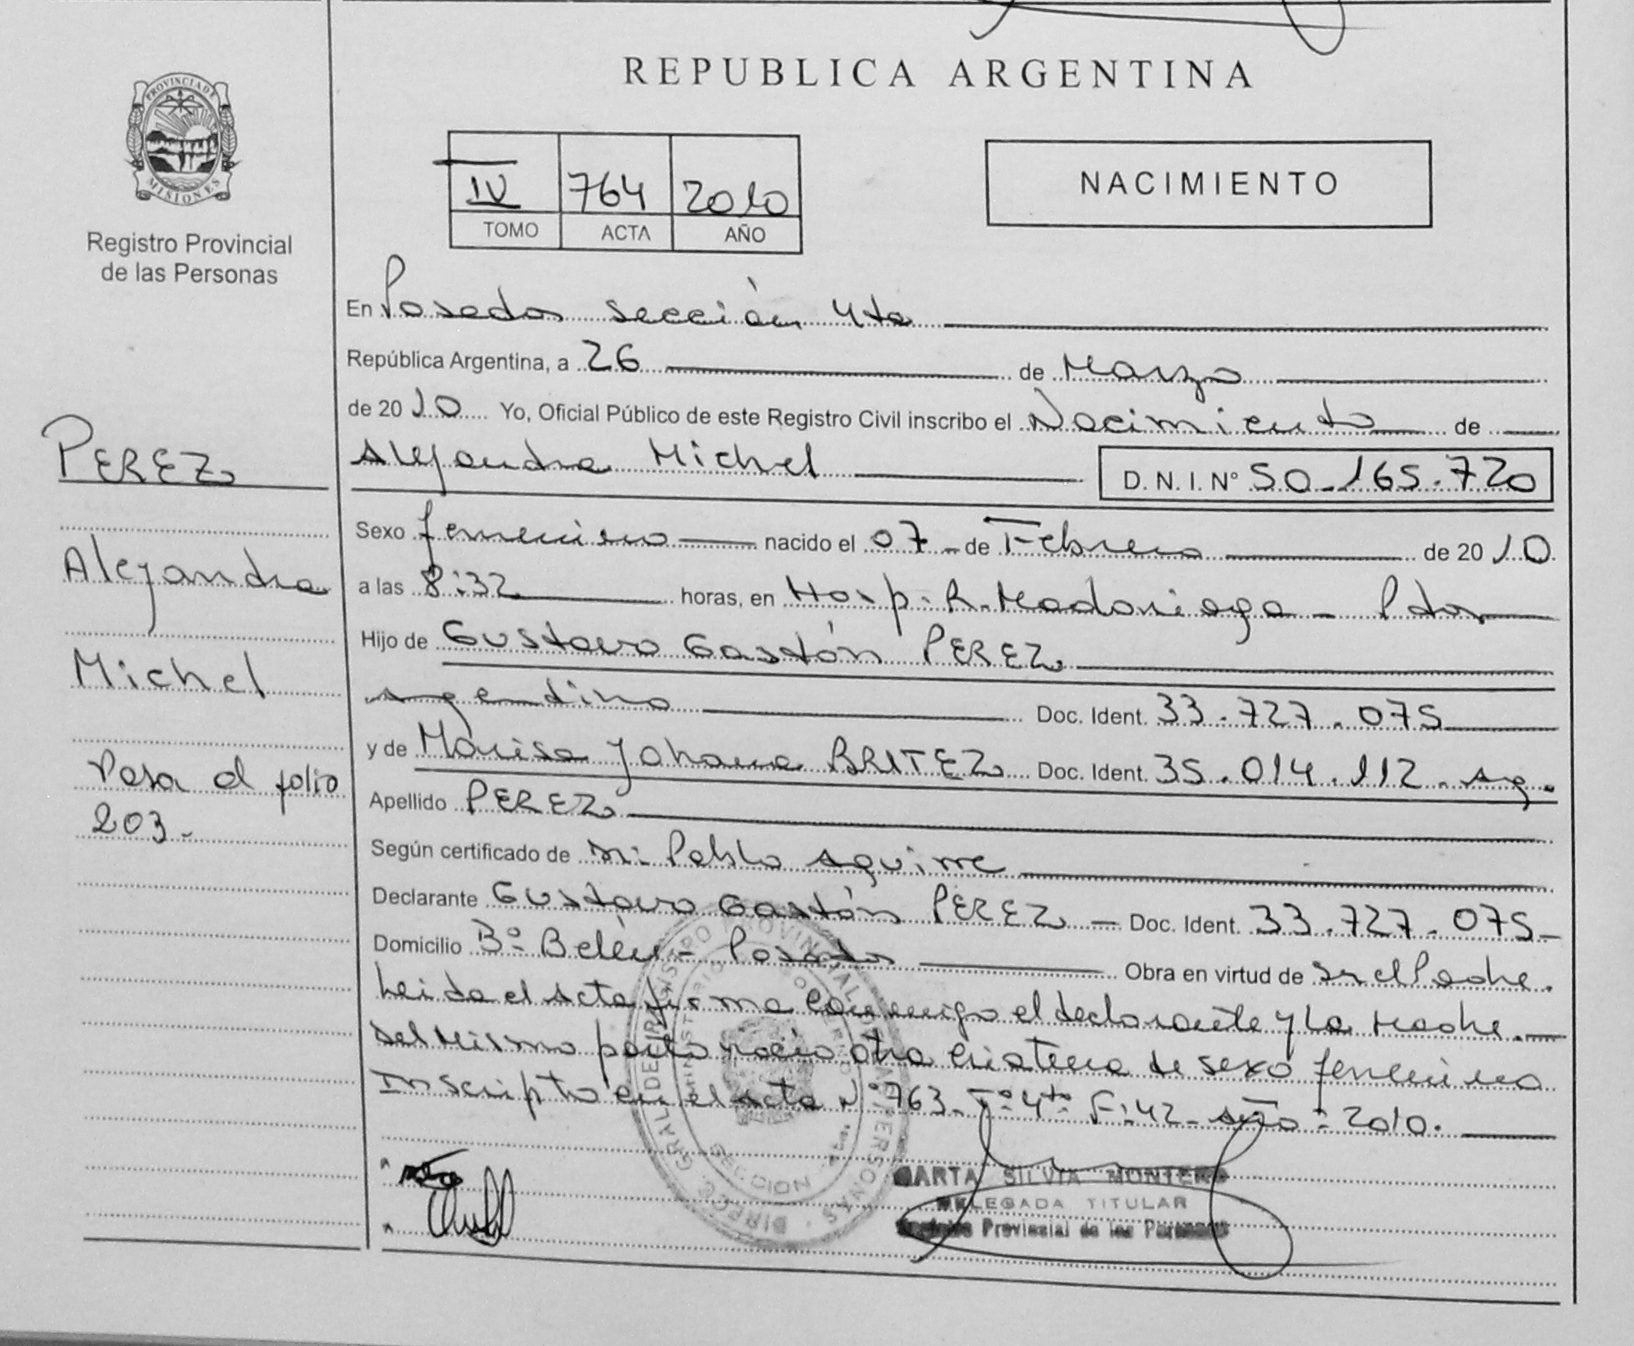 PROVINCIA DE MISIONES
Registro Provincial
de las Personas
REPUBLICA ARGENTINA
IV 764 2010
TOMO ACTA AÑO
NACIMIENTO
En Posadas sección 4ta
República Argentina, a 26 de Marzo
de 2010 Yo, Oficial Público de este Registro Civil inscribo el Nacimiento de
Alejandra Michel D.N.I. Nº 50.165.720
Sexo femenino nacido el 07 de Febrero de 2010
a las 8:32 horas, en Hosp. R. Madariaga - Pdas
Hijo de Gustavo Gastón PEREZ
argentino Doc. Ident. 33.727.075
y de Marisa Johana BRITEZ Doc. Ident. 35.014.112 - arg.
Apellido PEREZ
Según certificado de Pablo Aguirre
Declarante Gustavo Gastón PEREZ - Doc. Ident. 33.727.075
Domicilio Bº Belén - Posadas Obra en virtud de ser el Padre.
Leida el acta firma conmigo el declarante y la Madre.
Del mismo parto nacio otra criatura de sexo femenino
Inscripto en el acta Nº 763 - Tº 4to F: 42 - año: 2010.
PEREZ
Alejandra
Michel
Pasa al folio
203-
MARTA SILVIA MONTERO
DELEGADA TITULAR
Registro Provincial de las Personas